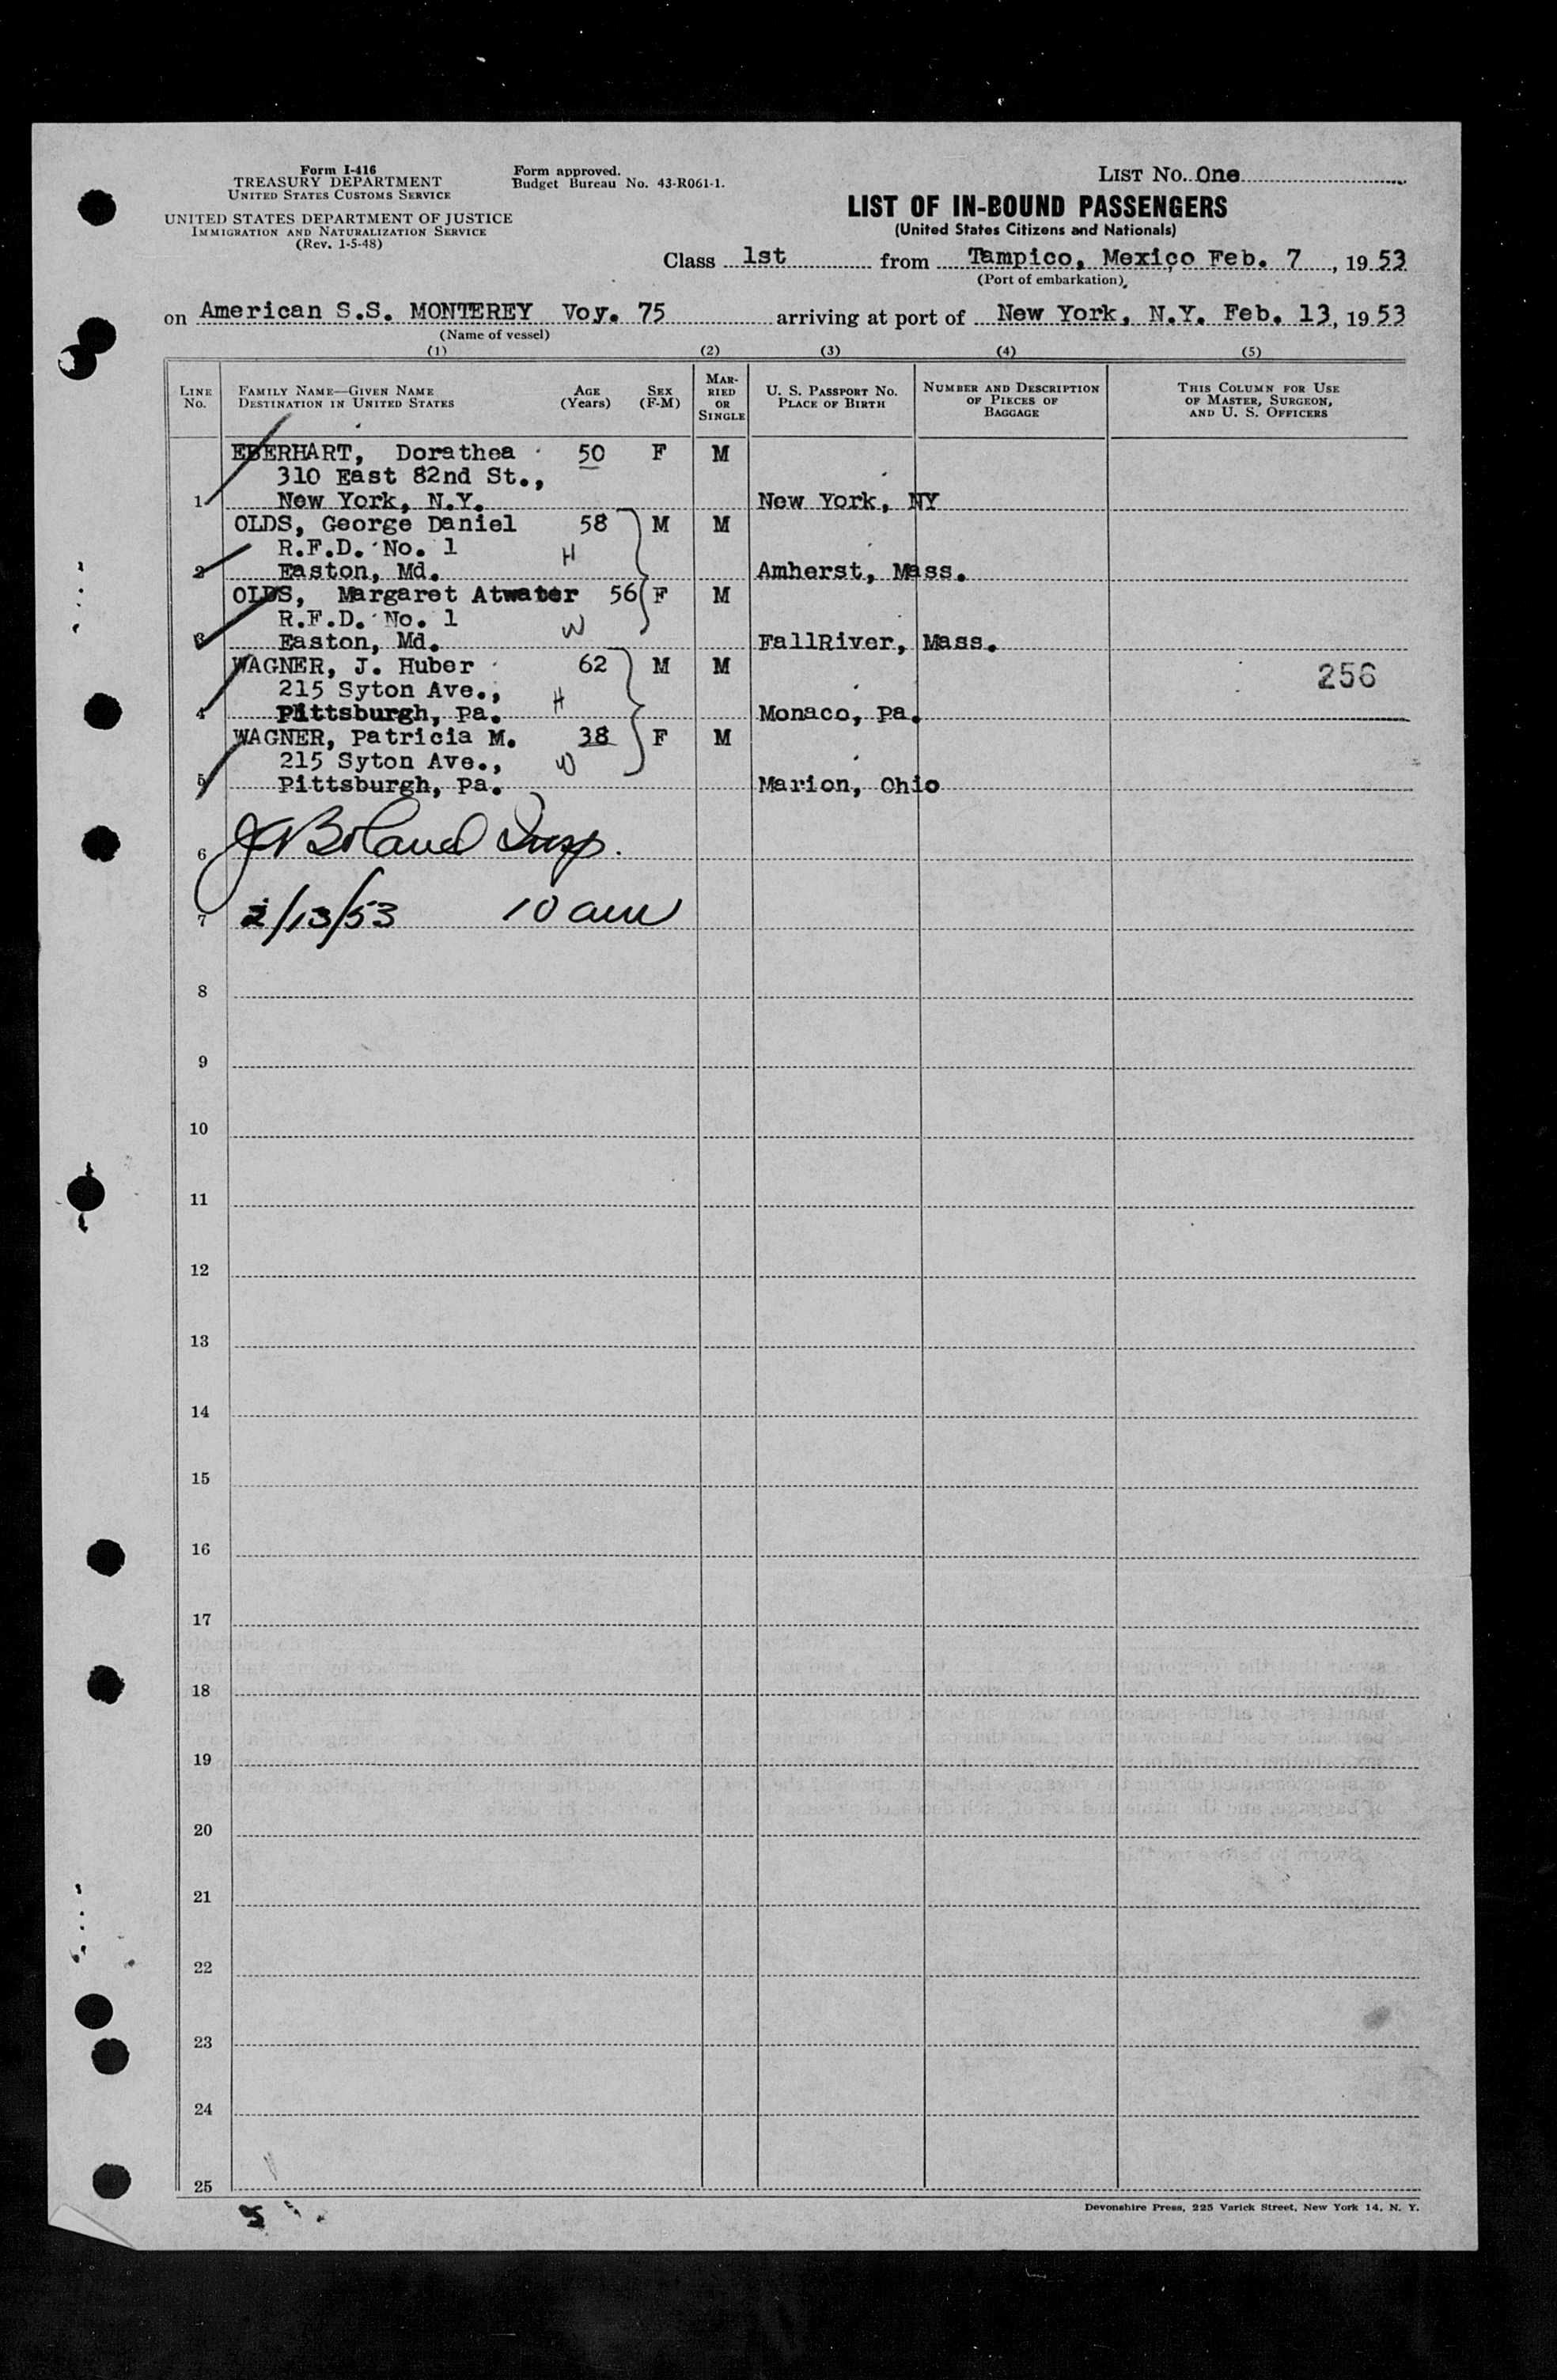 Form I-416
TREASURY DEPARTMENT
UNITED STATES CUSTOMS SERVICE
UNITED STATES DEPARTMENT OF JUSTICE
IMMIGRATION AND NATURALIZATION SERVICE
(Rev. 1-5-48)
Form approved.
Budget Bureau No. 43-R061-1.
LIST NO. One
LIST OF IN-BOUND PASSENGERS
(United States Citizens and Nationals)
Class 1st from Tampico, Mexico Feb. 7, 1953
(Port of embarkation)
on American S.S. MONTEREY Voy. 75 arriving at port of New York, N.Y. Feb. 13, 1953
(Name of vessel)
(1) (2) (3) (4) (5)
LINE NO.
FAMILY NAME—GIVEN NAME
DESTINATION IN UNITED STATES
AGE (Years)
SEX (F-M)
MARRIED OR SINGLE
U. S. PASSPORT NO.
PLACE OF BIRTH
NUMBER AND DESCRIPTION OF PIECES OF BAGGAGE
THIS COLUMN FOR USE OF MASTER, SURGEON, AND U. S. OFFICERS
EBERHART, Dorathea 50 F M
310 East 82nd St.,
1 New York, N.Y. New York, NY
OLDS, George Daniel 58 M M
R.F.D. No. 1 H
2 Easton, Md. Amherst, Mass.
OLDS, Margaret Atwater 56 F M
R.F.D. No. 1 W
3 Easton, Md. FallRiver, Mass.
WAGNER, J. Huber 62 M M
215 Syton Ave., H 256
4 Pittsburgh, Pa. Monaco, Pa.
WAGNER, Patricia M. 38 F M
215 Syton Ave., W
5 Pittsburgh, Pa. Marion, Ohio
6 Boland Insp.
7 2/13/53 10 am
8
9
10
11
12
13
14
15
16
17
18
19
20
21
22
23
24
25
5
Devonshire Press, 225 Varick Street, New York 14, N. Y.